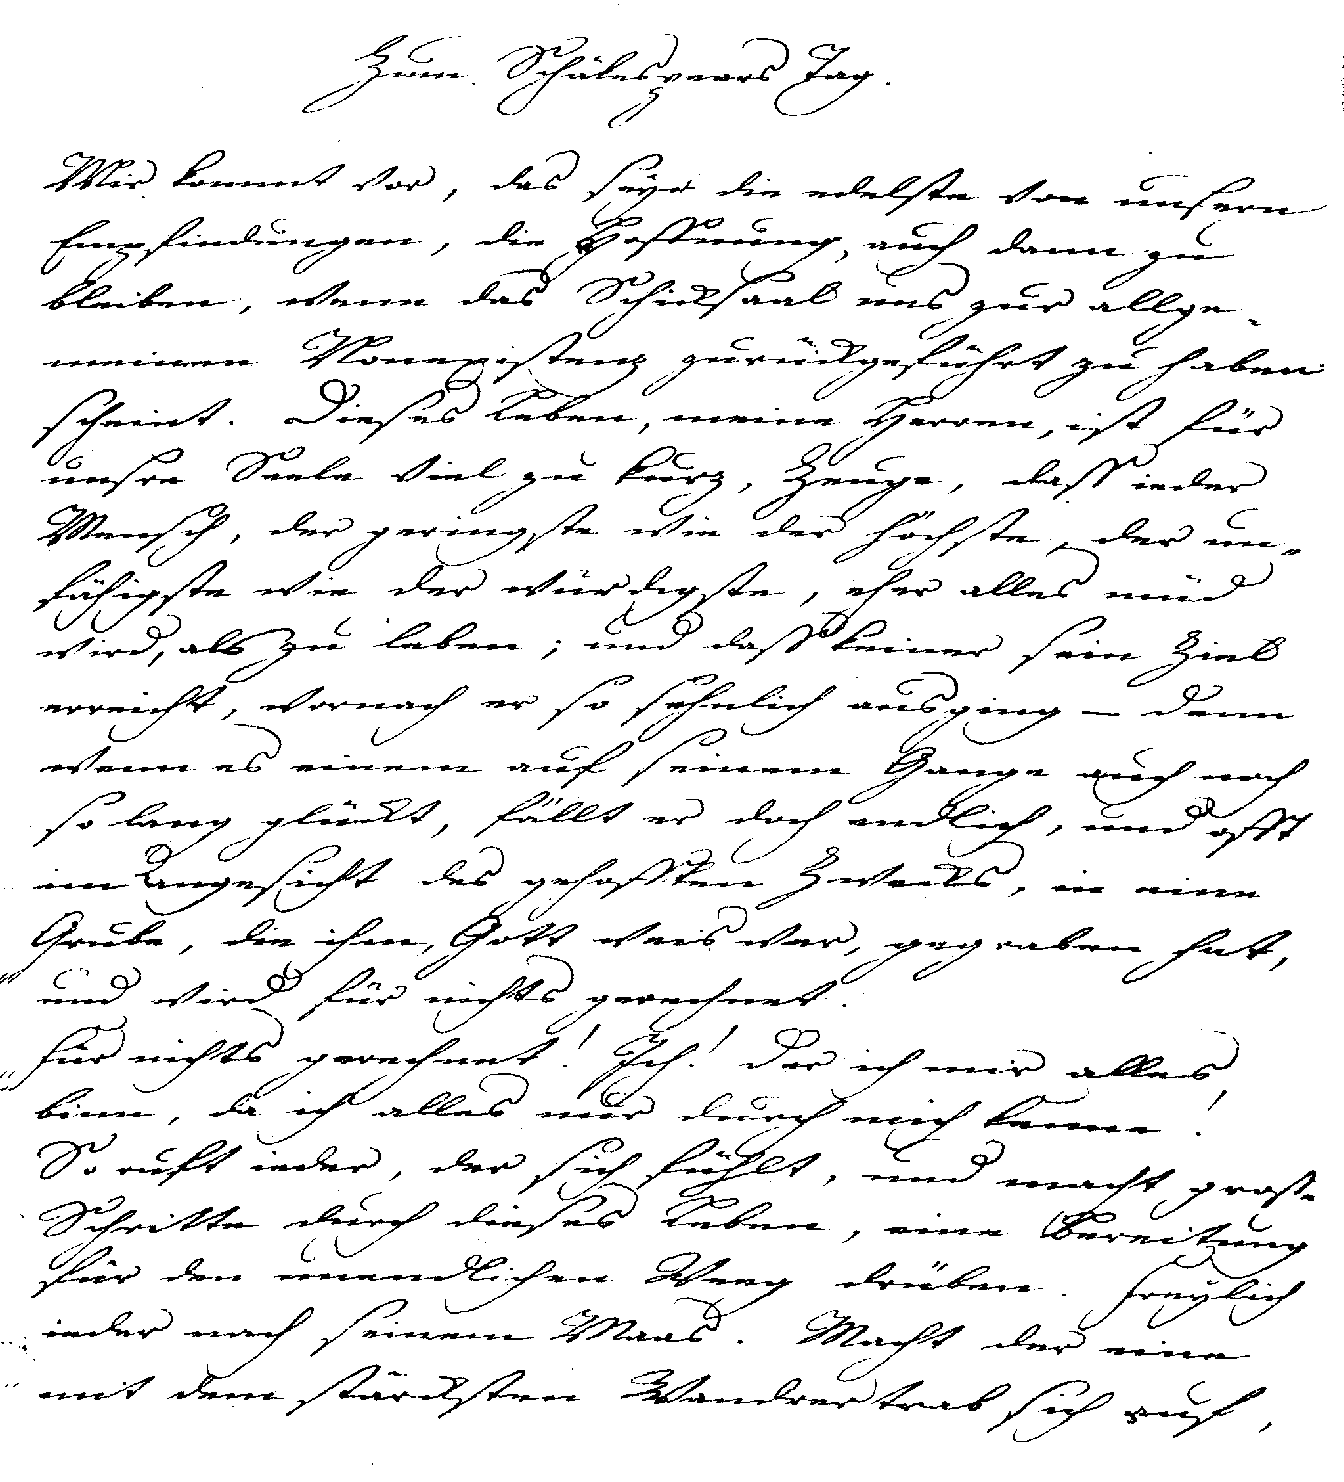 Zum Schäkespears Tag.
Mir kommt vor, das seye die edelste von unsern
Empfindungen, die Hoffnung, auch dann zu
bleiben, wenn das Schicksaal uns zur allge-
meinen Nonexistenz zurückgeführt zu haben
scheint. Dieses Leben, meine Herren, ist für
unsre Seele viel zu kurz, Zeuge, dass ieder
Mensch, der geringste wie der höchste, der un-
fähigste wie der würdigste, eher alles müd
wird, als zu leben; und dass keiner sein Ziel
erreicht, wornach er so sehnlich ausging – denn
wenn es einem auf seinem Gange auch noch
so lang glückt, fällt er doch endlich, und offt
im Angesicht des gehofften Zwecks, in eine
Grube, die ihm, Gott weis wer, gegraben hat,
und wird für nichts gerechnet.
Für nichts gerechnet! Ich! Der ich mir alles
binn, da ich alles nur durch mich kenne!
So ruft ieder, der sich fühlt, und macht grosse
Schritte durch dieses Leben, eine Bereitung
für den unendlichen Weeg drüben. Freylich
ieder nach seinem Maas. Macht der eine
mit dem stärcksten Wandrertrab sich auf,